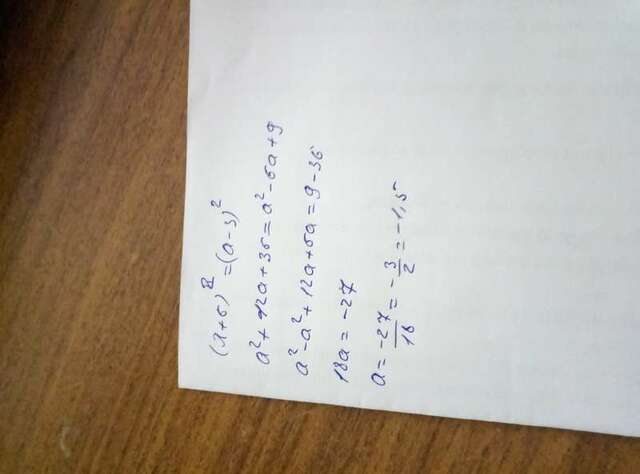 (a+6)² = (a-3)²
a²+12a+36=a²-6a+9
a²-a²+12a+6a=9-36
18a = -27
a = -27/18 = -3/2 = -1,5